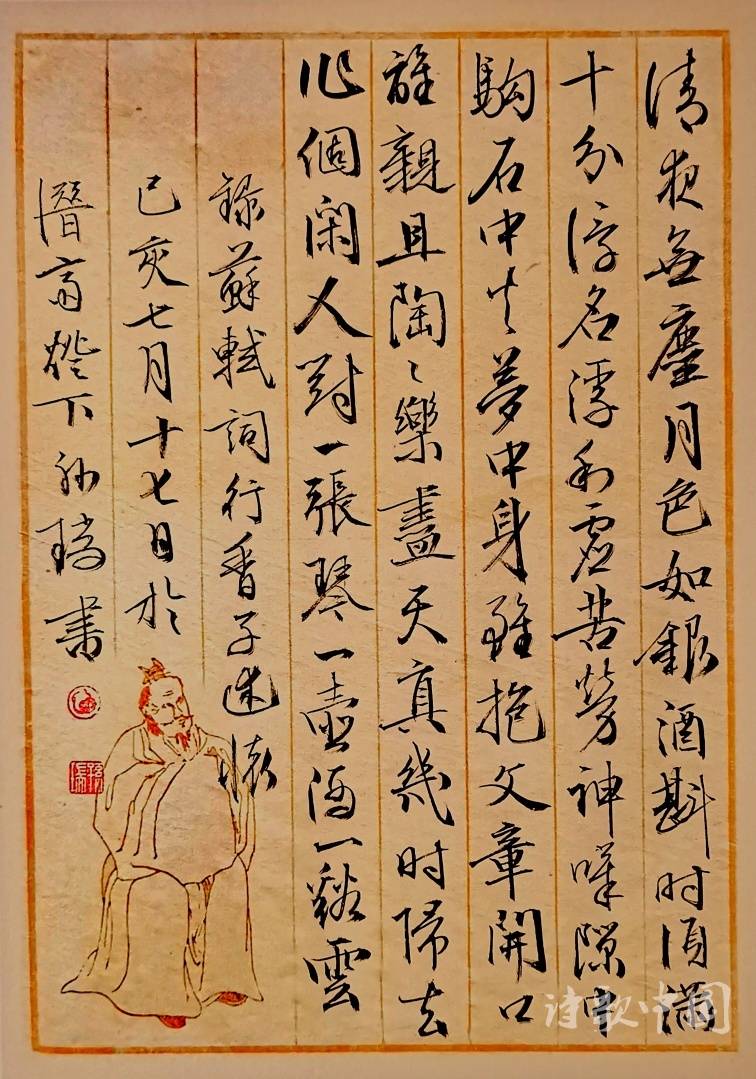 清夜無塵月色如銀酒斟时須滿
十分浮名浮利虛苦勞神嘆隙中
駒石中火夢中身雖抱文章開口
誰親且陶〻樂盡天真幾时歸去
作個闲人對一張琴一壺酒一谿雲
錄蘇軾詞行香子述懷
己亥七月十七日於
潛齋燈下孙書
诗歌中国